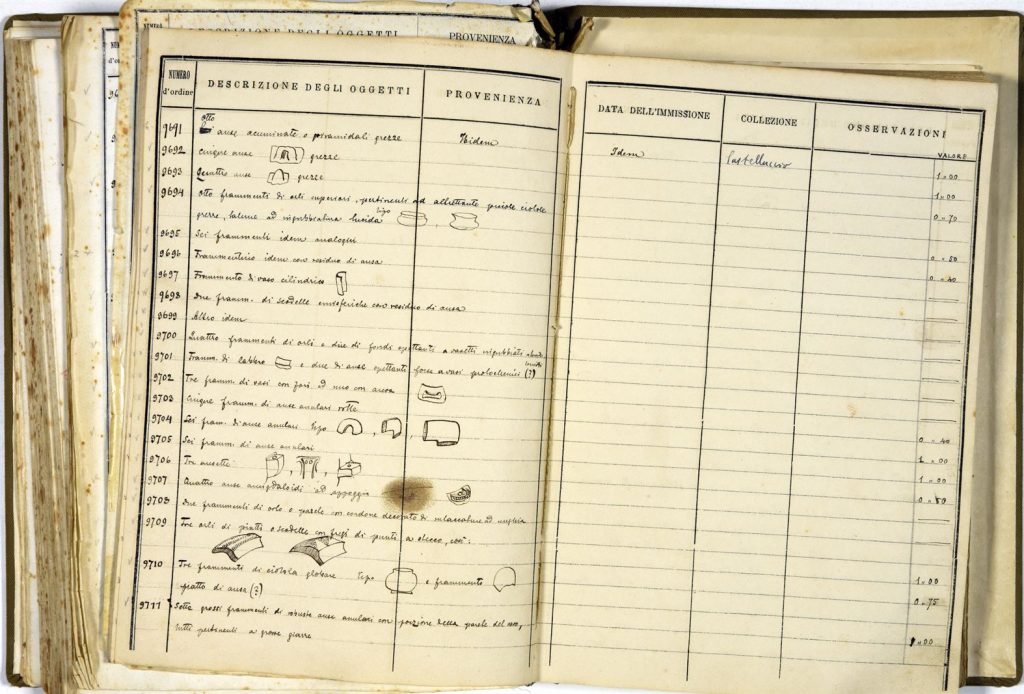 NUMERO
DESCRIZIONE DEGLI OGGETTI
PROVENIENZA
NUMERO d'ordine
DESCRIZIONE DEGLI OGGETTI
PROVENIENZA
DATA DELL'IMMISSIONE
COLLEZIONE
OSSERVAZIONI
VALORE
otto
9691 anse acuminate o piramidali grezze Ibidem Idem Castelluccio 1=00
9692 Cinque anse grezze 1=00
9693 Quattro anse grezze 0=70
9694 Otto frammenti di orli superiori, pertinenti ad altrettante ciotole
grezze, talune ad ingubbiatura lucida tipo ,
9695 Sei frammenti idem analoghi 0=50
9696 Frammentino idem con residuo di ansa 0=40
9697 Frammento di vaso cilindrico
9698 Due framm. di scodelle emisferiche con residuo di ansa
9699 Altro idem
9700 Quattro frammenti di orli e due di fondi spettanti a vasetti ingubbiati
9701 Framm. di labbro e due di anse spettanti forse a vasi (?)
9702 Tre framm. di vasi con fori ad uso con ancora
9703 Cinque framm. di anse anulari rotte
9704 Sei fram. di anse anulari tipo , , 0=40
9705 Sei framm. di anse anulari 1=00
9706 Tre ansette , , 1=00
9707 Quattro anse amigdaloidi ad appoggio 0=50
9708 Due frammenti di orlo o parete con cordone decorato di intaccature ad unghia
9709 Tre orli di piatti o scodelle con fregi di punti a stecco, così:
9710 Tre frammenti di ciotola globare tipo e frammento 1=00
piatto di ansa (?) 0=75
9711 Sette grossi frammenti di robuste anse anulari con porzione della parete del vaso, 1=00
tutti pertinenti a grosse giarre